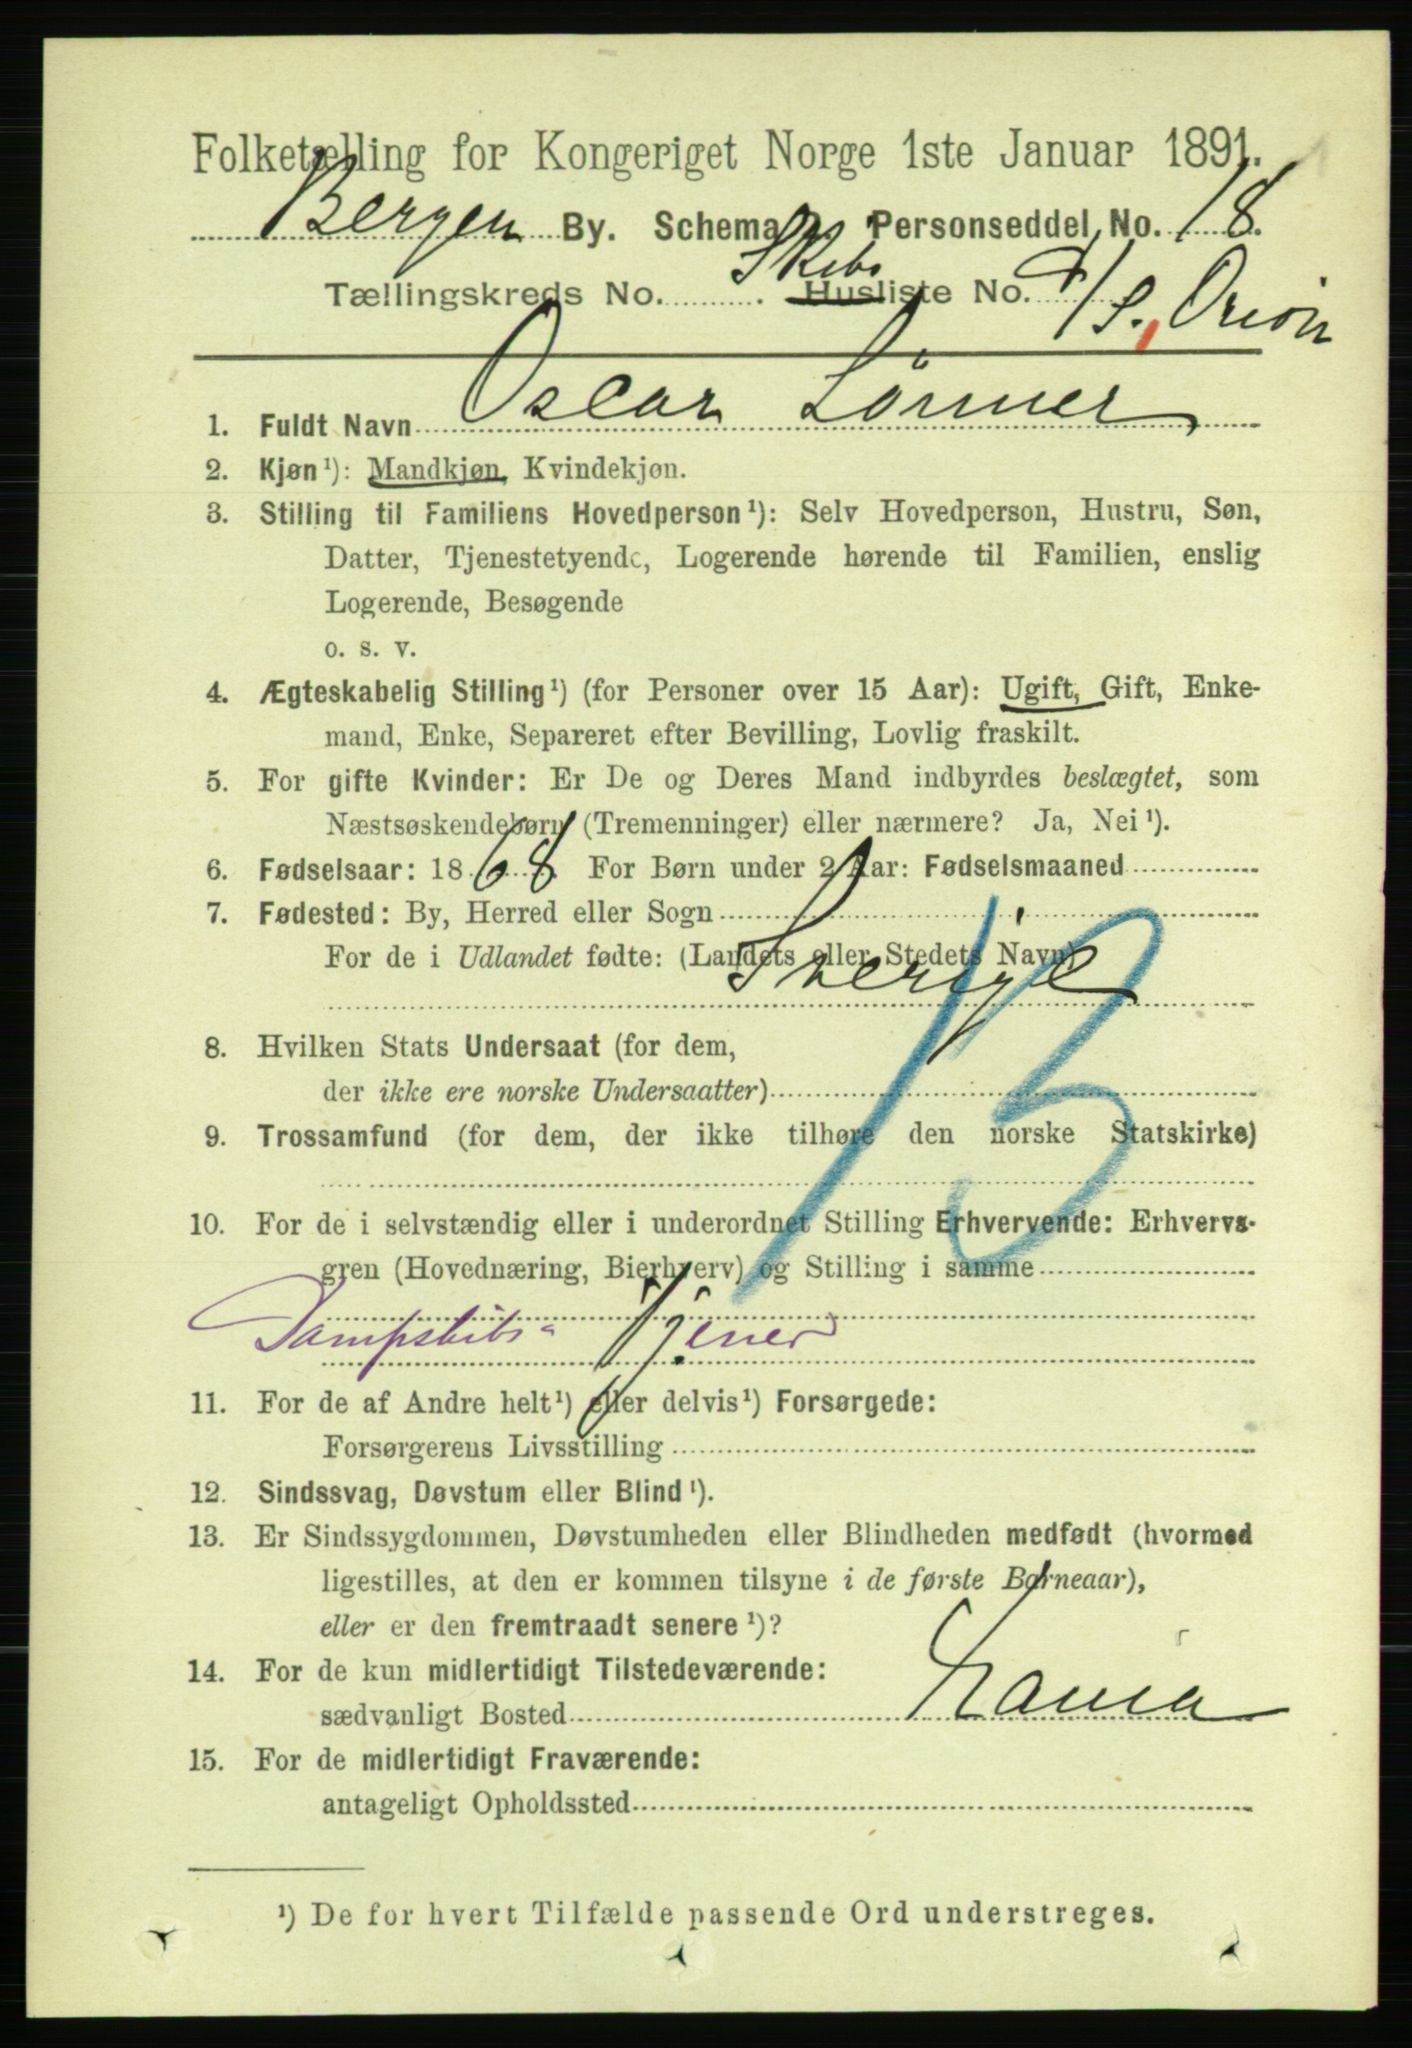 Folketælling for Kongeriget Norge 1ste Januar 1891.
Bergen By. Schema 2. Personseddel No. 18.
Skibs
Tællingskreds No. . Husliste No. D/S. Orion
1. Fuldt Navn Oscar Lönner
2. Kjøn ¹): Mandkjøn, Kvindekjøn.
3. Stilling til Familiens Hovedperson ¹): Selv Hovedperson, Hustru, Søn,
Datter, Tjenestetyende, Logerende hørende til Familien, enslig
Logerende, Besøgende
o. s. v.
4. Ægteskabelig Stilling ¹) (for Personer over 15 Aar): Ugift, Gift, Enke-
mand, Enke, Separeret efter Bevilling, Lovlig fraskilt.
5. For gifte Kvinder: Er De og Deres Mand indbyrdes beslægtet, som
Næstsøskendebørn (Tremenninger) eller nærmere? Ja, Nei ¹).
6. Fødselsaar: 1868 For Børn under 2 Aar: Fødselsmaaned
7. Fødested: By, Herred eller Sogn
For de i Udlandet fødte: (Landets eller Stedets Navn)
Sverige
13
8. Hvilken Stats Undersaat (for dem,
der ikke ere norske Undersaatter)
9. Trossamfund (for dem, der ikke tilhøre den norske Statskirke)
10. For de i selvstændig eller i underordnet Stilling Erhvervende: Erhvervs-
gren (Hovednæring, Bierhverv) og Stilling i samme
Dampskibs- Tjener
11. For de af Andre helt ¹) eller delvis ¹) Forsørgede:
Forsørgerens Livsstilling
12. Sindssvag, Døvstum eller Blind ¹).
13. Er Sindssygdommen, Døvstumheden eller Blindheden medfødt (hvormed
ligestilles, at den er kommen tilsyne i de første Barneaar),
eller er den fremtraadt senere ¹)?
14. For de kun midlertidigt Tilstedeværende:
sædvanligt Bosted
15. For de midlertidigt Fraværende:
antageligt Opholdssted
¹) De for hvert Tilfælde passende Ord understreges.